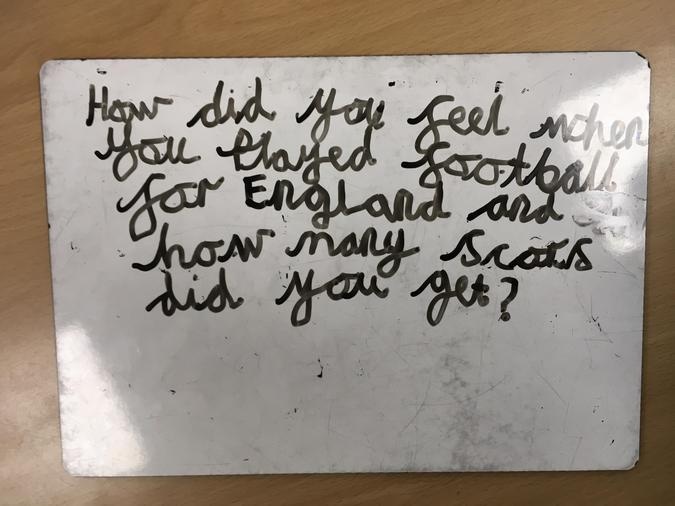 How did you feel when
you played football
for England and
how many scors
did you get?